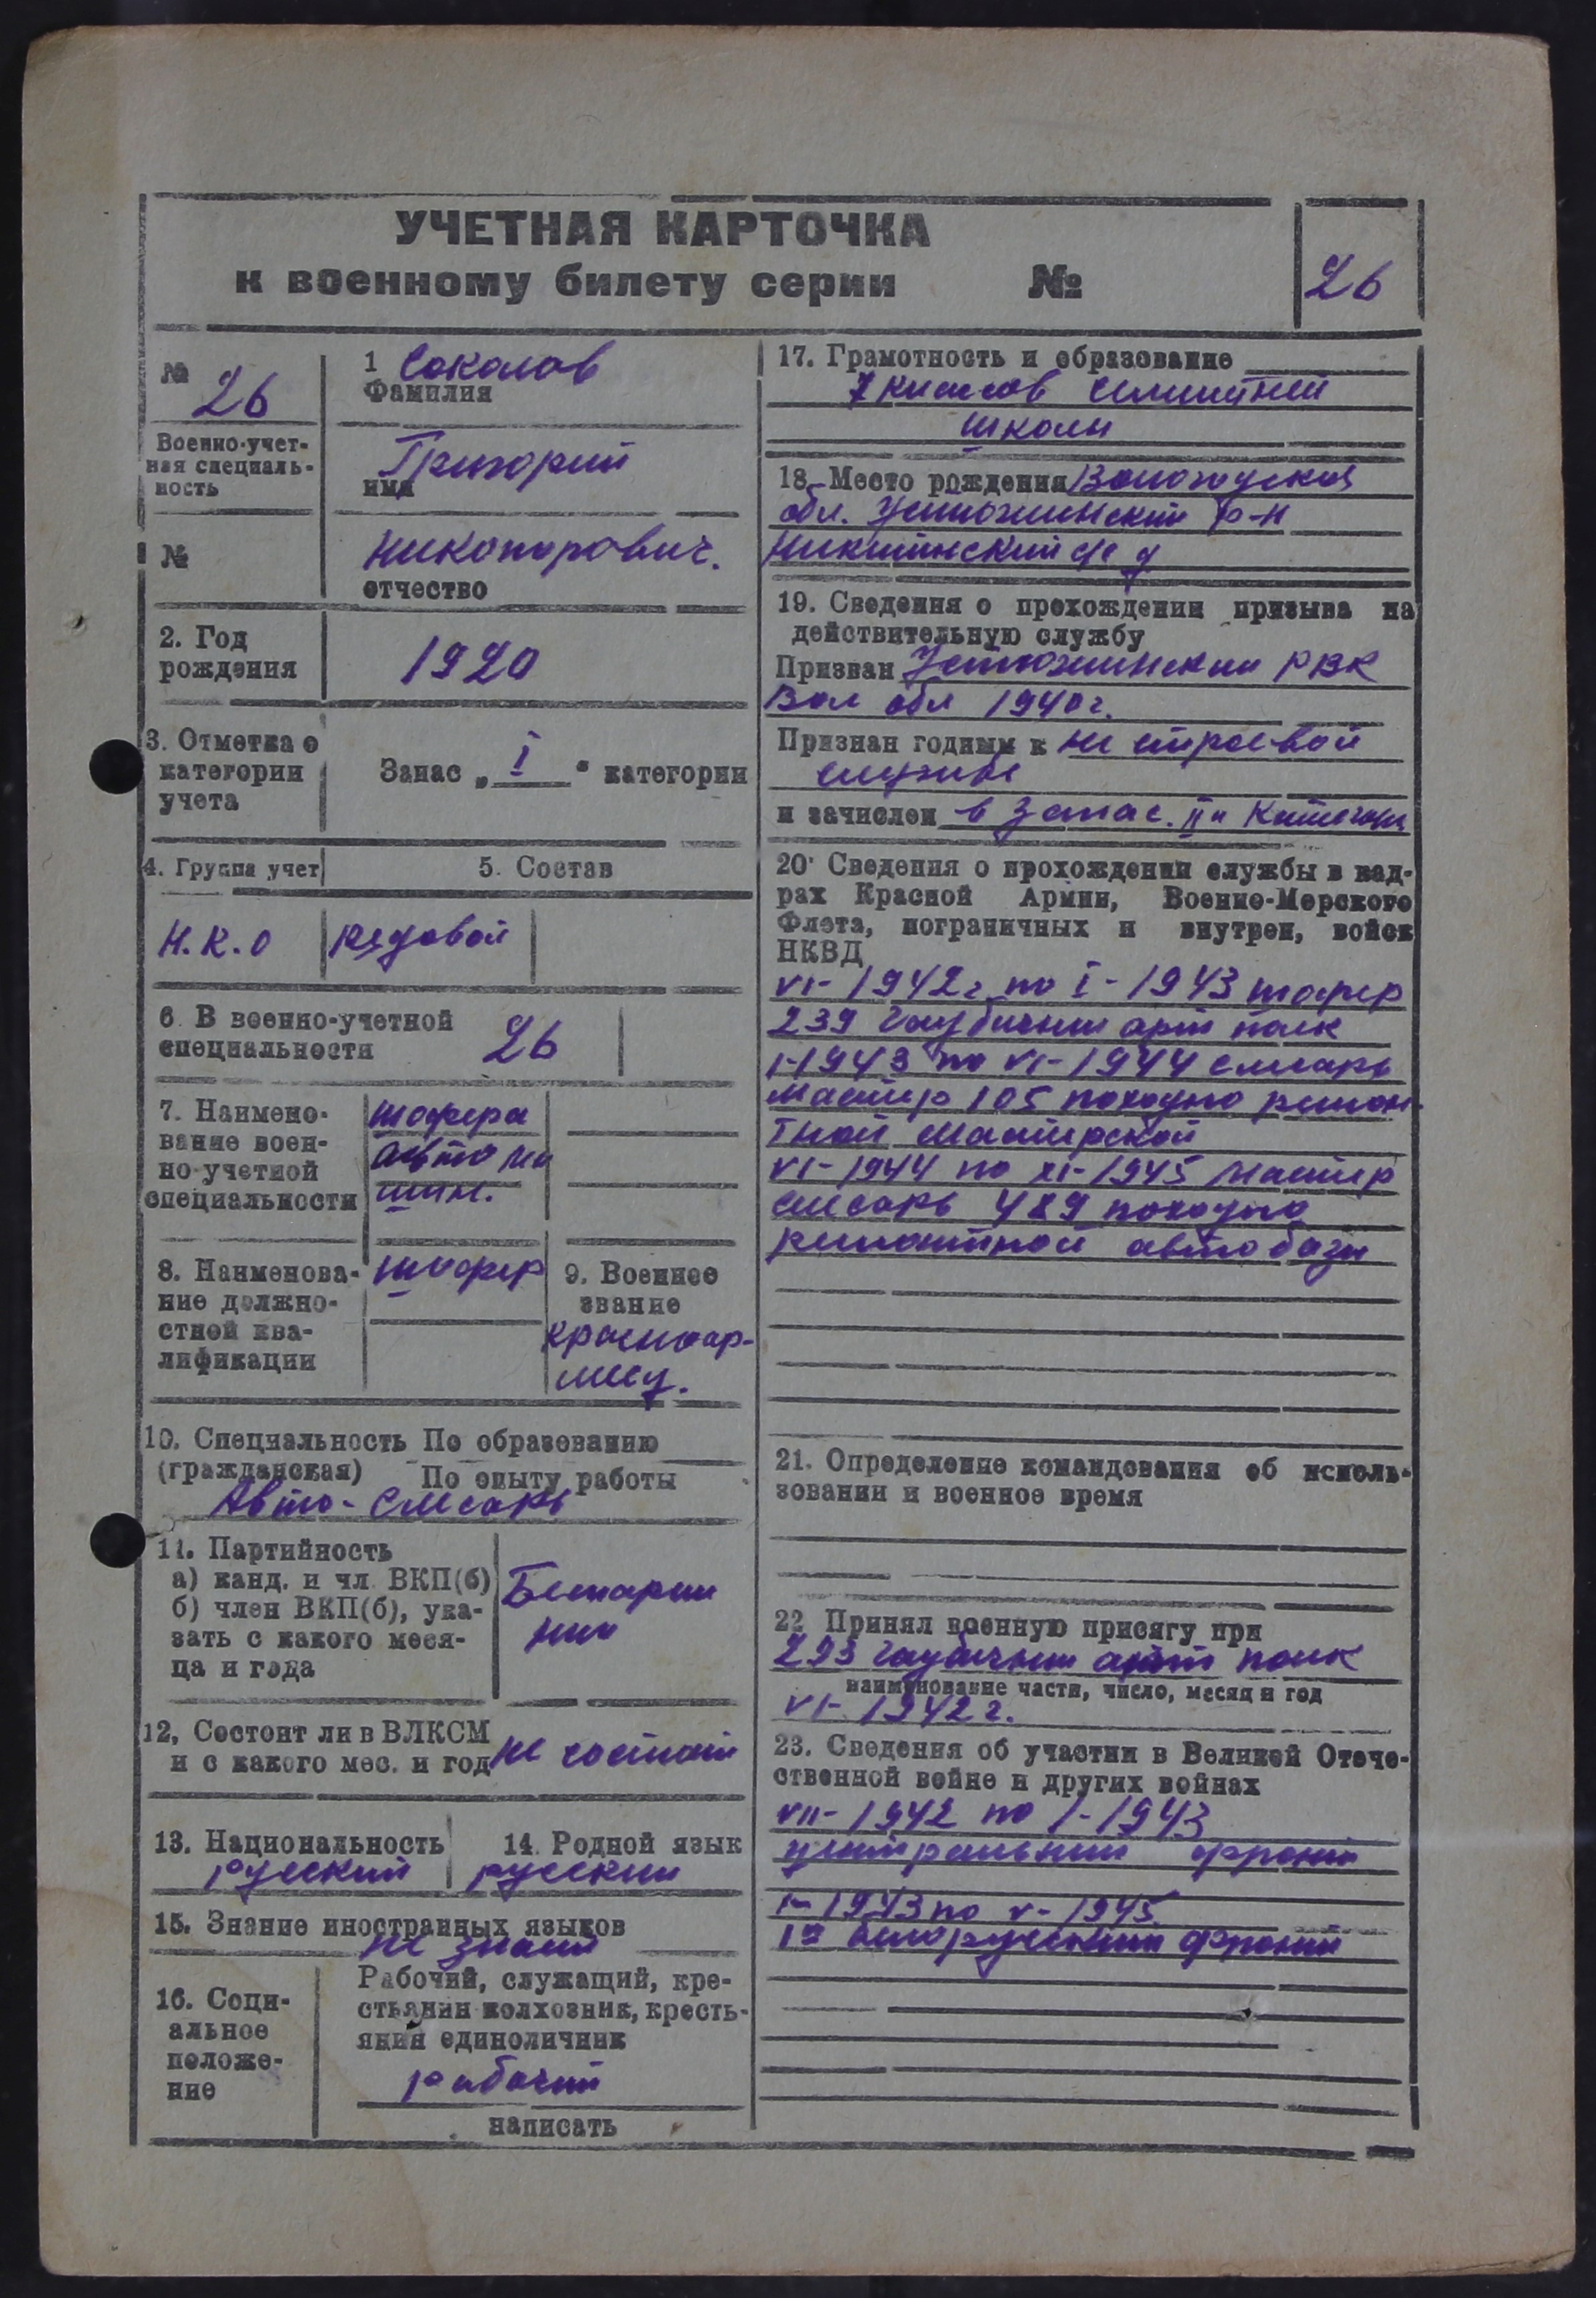 УЧЕТНАЯ КАРТОЧКА
к военному билету серии №
26
№
26
Военно-учет-
ная специаль-
ность
№
1 Соколов
Фамилия
Григорий
имя
Никонорович.
отчество
2. Год
рождения
1920
3. Отметка о
категории
учета
Запас „ I " категории
4. Группа учет
5. Состав
Н.К.О
рядовой
6. В военно-учетной
специальности
26
7. Наимено-
вание воен-
но-учетной
специальности
шофера
авто ма
шин.
8. Наименова-
ние должно-
стной ква-
лификации
шофер
9. Военное
звание
красноар-
меец.
10. Специальность По образованию
(гражданская) По опыту работы
Авто-слесарь
11. Партийность
а) канд. и чл. ВКП(б)
б) член ВКП(б), ука-
зать с какого меся-
ца и года
Беспартий
ный
12, Состоит ли в ВЛКСМ
и с какого мес. и год
не состоит
13. Национальность
русский
14. Родной язык
русский
15. Знание иностранных языков
не знает
16. Соци-
альное
положе-
ние
Рабочий, служащий, кре-
стьянин-колхозник, кресть-
янин единоличник
рабочий
написать
17. Грамотность и образование
7 классов семилетней
школы
18. Место рождения Вологодская
обл. Устюженский р-н
Никитинский с/с д
19. Сведения о прохождении призыва на
действительную службу
Призван Устюженским РВК
Вол обл 1940г.
Признан годным к не строевой
службе
и зачислен в запас. II и Категори
20. Сведения о прохождении службы в кад-
рах Красной Армии, Военно-Морского
Флота, пограничных и внутрен, войск
НКВД
VI-1942г по I-1943 шофер
239 гаубичный арт полк
I-1943 по VI-1944 слесарь
мастер 105 походно ремон-
тной мастерской
VI-1944 по XI-1945 мастер
слесарь 489 походно
ремонтной автобазы
21. Определение командования об исполь-
зовании и военное время
22. Принял военную присягу при
293 гаубичный арт полк
наименование части, число, месяц и год
VI-1942г.
23. Сведения об участии в Великой Отече-
ственной войне и других войнах
VII-1942 по I-1943
центральный фронт
I-1943 по V-1945
1й белорусский фронт